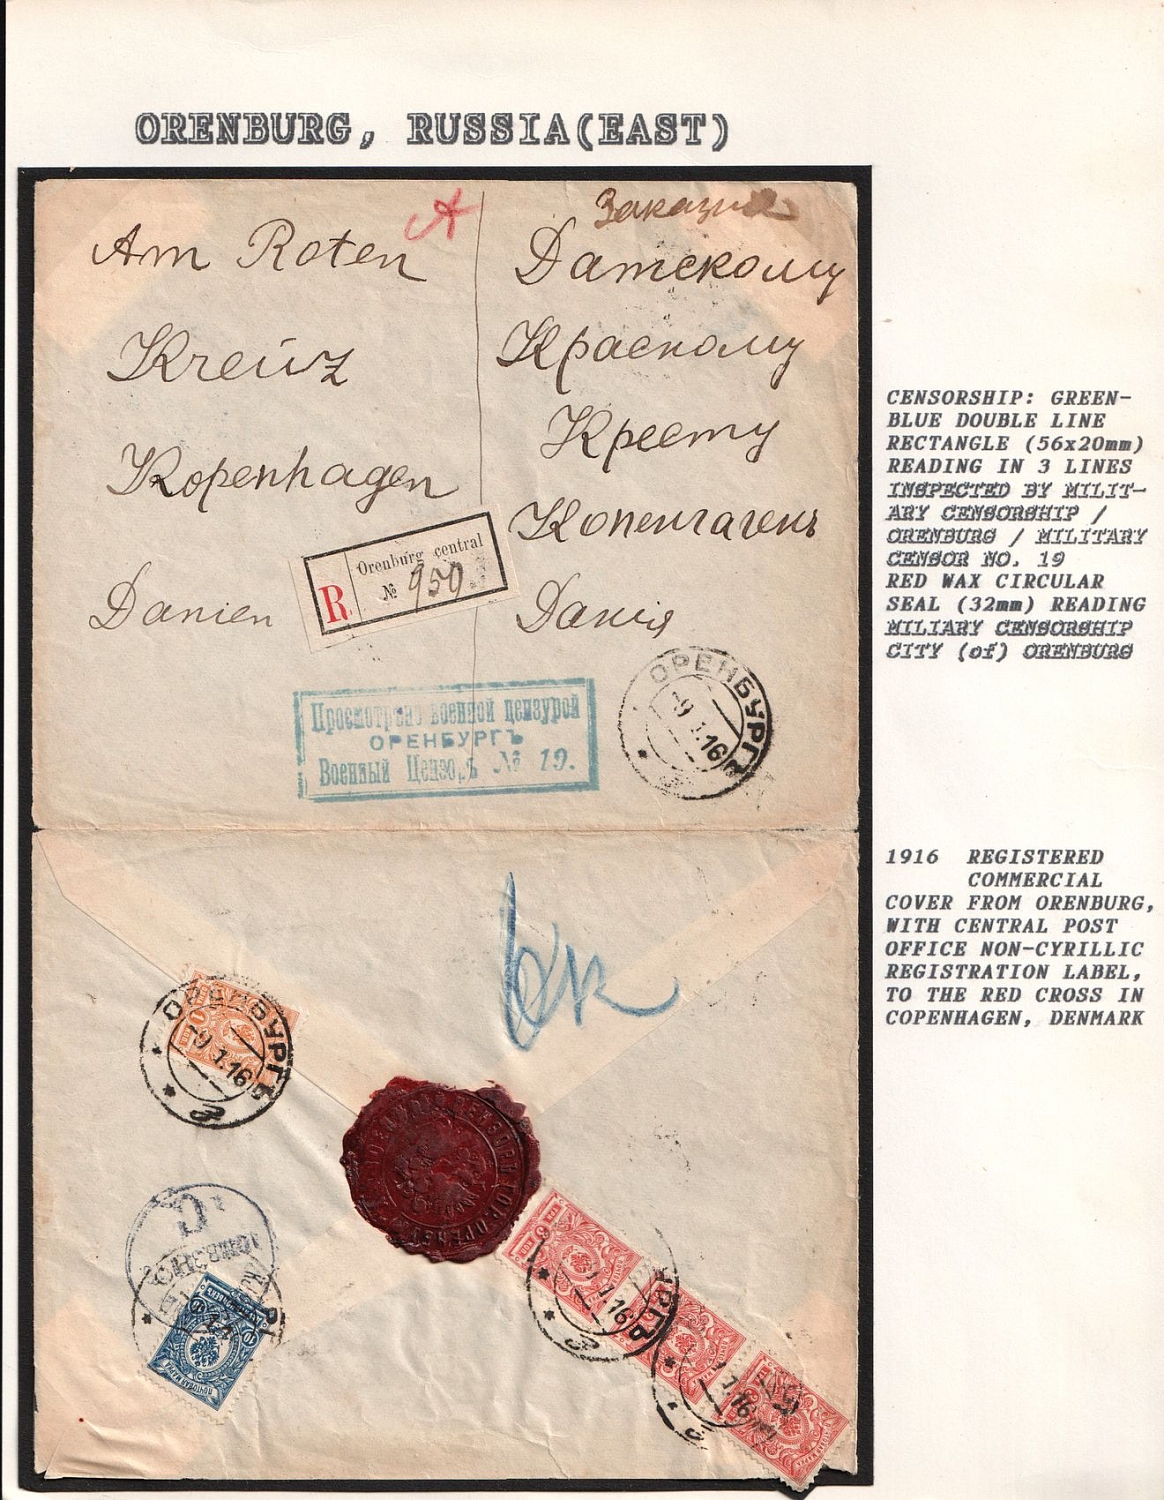 ORENBURG, RUSSIA(EAST)
A
Am Roten
Kreuz
Kopenhagen
Danien
Заказное
Датскому
Красному
Кресту
Копенгагенъ
Данія
R
Orenburg central
№ 950
Просмотрено военной цензурой
ОРЕНБУРГЪ
Военный Цензоръ № 19.
ОРЕНБУРГЪ
19.1.16
CENSORSHIP: GREEN-
BLUE DOUBLE LINE
RECTANGLE (56x20mm)
READING IN 3 LINES
INSPECTED BY MILIT-
ARY CENSORSHIP /
ORENBURG / MILITARY
CENSOR NO. 19
RED WAX CIRCULAR
SEAL (32mm) READING
MILIARY CENSORSHIP
CITY (of) ORENBURG
1916 REGISTERED
COMMERCIAL
COVER FROM ORENBURG,
WITH CENTRAL POST
OFFICE NON-CYRILLIC
REGISTRATION LABEL,
TO THE RED CROSS IN
COPENHAGEN, DENMARK
ОРЕНБУРГЪ
19.1.16